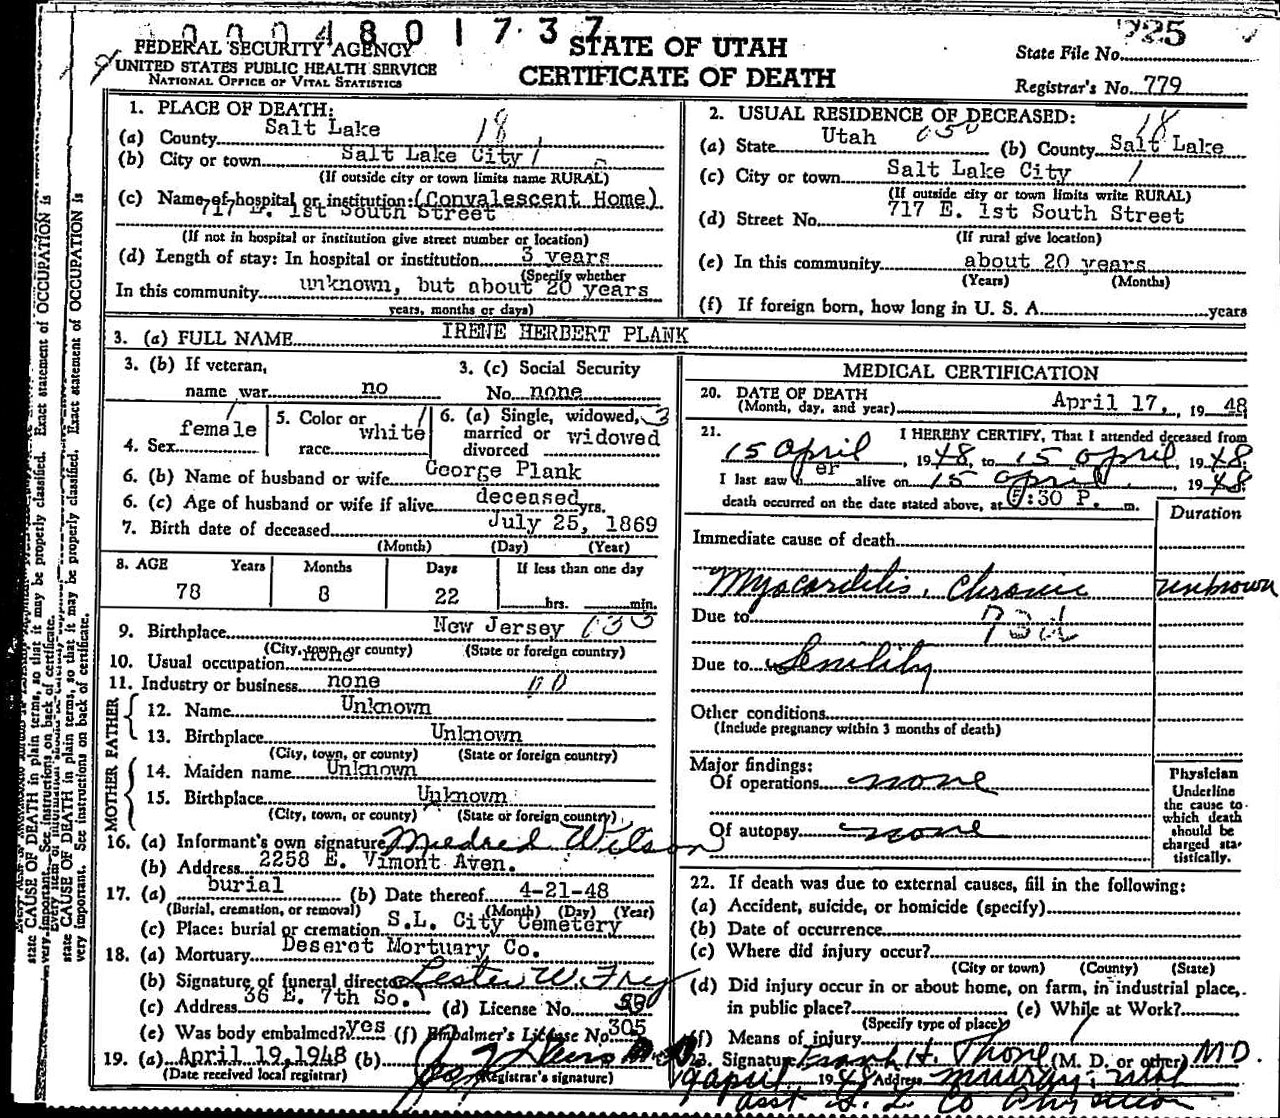 0004801737
FEDERAL SECURITY AGENCY
UNITED STATES PUBLIC HEALTH SERVICE
NATIONAL OFFICE OF VITAL STATISTICS
STATE OF UTAH
CERTIFICATE OF DEATH
State File No. 925
Registrar's No. 779
1. PLACE OF DEATH:
(a) County Salt Lake 18
(b) City or town Salt Lake City 1
(If outside city or town limits name RURAL)
(c) Name of hospital or institution: (Convalescent Home)
717 E. 1st South Street
(If not in hospital or institution give street number or location)
(d) Length of stay: In hospital or institution 3 years
(Specify whether
In this community unknown, but about 20 years
years, months or days)
2. USUAL RESIDENCE OF DECEASED:
(a) State Utah 050 (b) County Salt Lake 18
(c) City or town Salt Lake City 1
(If outside city or town limits write RURAL)
(d) Street No. 717 E. 1st South Street
(If rural give location)
(e) In this community about 20 years
(Years) (Months)
(f) If foreign born, how long in U. S. A. years
3. (a) FULL NAME IRENE HERBERT PLANK
3. (b) If veteran,
name war no
3. (c) Social Security
No. none
4. Sex female
5. Color or race white
6. (a) Single, widowed, married or divorced widowed 3
6. (b) Name of husband or wife George Plank
6. (c) Age of husband or wife if alive deceased yrs.
7. Birth date of deceased July 25, 1869
(Month) (Day) (Year)
8. AGE Years Months Days If less than one day
78 8 22 hrs. min.
9. Birthplace New Jersey
(City, town, or county) (State or foreign country)
10. Usual occupation none
11. Industry or business none
FATHER
12. Name Unknown
13. Birthplace Unknown
(City, town, or county) (State or foreign country)
MOTHER
14. Maiden name Unknown
15. Birthplace Unknown
(City, town, or county) (State or foreign country)
16. (a) Informant's own signature Mildred Wilson
(b) Address 2258 E. Vimont Aven.
17. (a) burial (b) Date thereof 4-21-48
(Burial, cremation, or removal) (Month) (Day) (Year)
(c) Place: burial or cremation S.L. City Cemetery
18. (a) Mortuary Deseret Mortuary Co.
(b) Signature of funeral director Lester W. Frey
(c) Address 36 E. 7th So. (d) License No.
(e) Was body embalmed? yes (f) Embalmer's License No. 305
19. (a) April 19, 1948 (b)
(Date received local registrar) (Registrar's signature)
MEDICAL CERTIFICATION
20. DATE OF DEATH
(Month, day, and year) April 17, 1948
21. I HEREBY CERTIFY, That I attended deceased from
15 April, 1948, to 15 April, 1948.
I last saw her alive on 15 April, 1948
death occurred on the date stated above, at :30 P. m.
Duration
Immediate cause of death
Myocarditis, Chronic unknown
Due to 73d
Due to Senility
Other conditions
(Include pregnancy within 3 months of death)
Major findings:
Of operations none
Of autopsy none
Physician
Underline
the cause to
which death
should be
charged sta-
tistically.
22. If death was due to external causes, fill in the following:
(a) Accident, suicide, or homicide (specify)
(b) Date of occurrence
(c) Where did injury occur?
(City or town) (County) (State)
(d) Did injury occur in or about home, on farm, in industrial place,
in public place? (e) While at Work?
(Specify type of place)
(f) Means of injury
23. Signature Frank H. Thone (M. D. or other) M D.
19 April 1948 Address Murray, Utah
Asst S. L Co Physician
state CAUSE OF DEATH in plain terms, so that it may be properly classified. Exact statement of OCCUPATION is
very important. See instructions on back of certificate.